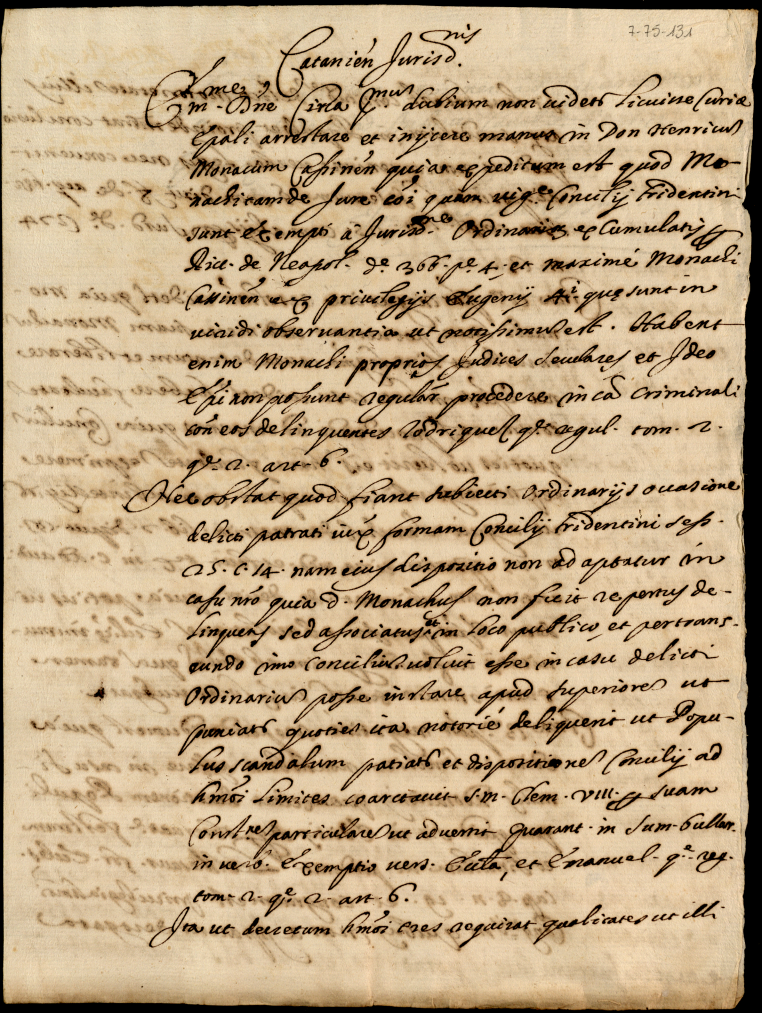 7-75-131
Catanien Jurisd.nis
Em.me D.ne Circa p.mus dubium non videtr licuisse Curiæ
Epali arrestare et inijcere manus in Don Henricus
Monacum Cassinen quia expeditum est quod Mo-
nachi tam de Jure coi quam vig.e Concilij Tridentini
sunt exempti a Jurisd.ne Ordinarij ex Cumulatis
Ricc. de Neapol. de 366. pe 4. et maximé Monachi
Cassinen ex privilegijs Eugenij 4.i quę sunt in
viridi observantia ut notissimus est. Habent
enim Monachi proprios Judices seculares et Ideo
Epi non possunt regular procedere in ca criminali
con eos delinquentes Rodriquez q. regul. tom. 2.
q. 2. art. 6.
Nec obstat quod fiant subiecti Ordinarijs occasione
delicti patrati iux formam Concilij Tridentini sess.
25. c. 14. nam eius dispositio non adaptatur in
casu nro quia d. Monachus non fuit repertus de-
linquens sed associatus et in loco publico, et pertrans-
eundo imo concilius voluit esse in casu delicti
Ordinarius posse instare apud superiores ut
puniatr quoties ita notorié deliquerit ut Popu-
lus scandalum patiatr et dispositiones Concilij ad
hmoi limites coarctavit s.m. Clem. VIII. suam
Const.nes particulares ut advertit Quarant. in Sum. bullar.
in verb. Exemptio vers. et Emanuel. q. reg.
tom. 2. q. 2. art. 6.
Ita ut decretum hmoi tres requirat qualitates ut illi